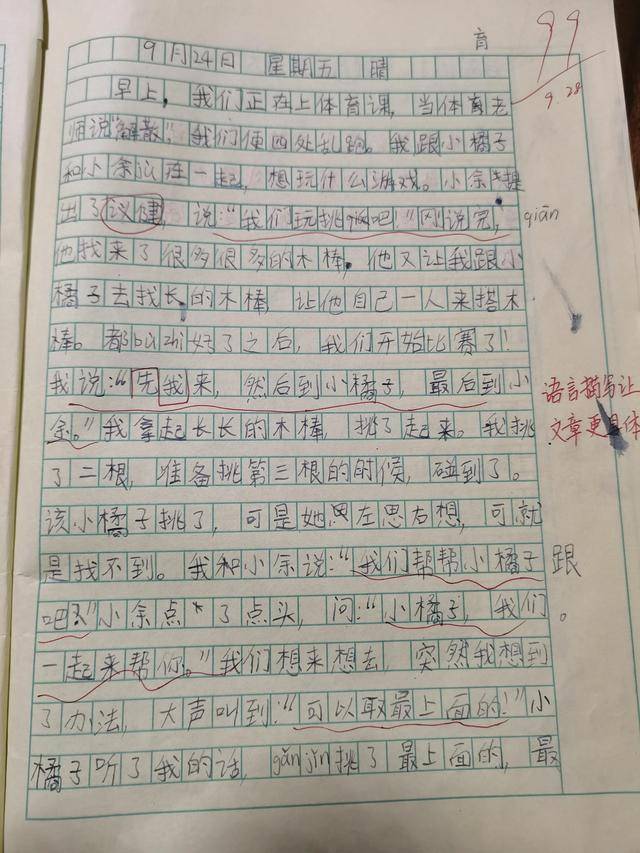 育
99
9.28
9月24日 星期五 晴
早上，我们正在上体育课，当体育老
师说“解散”，我们便四处乱跑。我跟小橘子
和小余议在一起，想玩什么游戏。小余提
出了议建，说：“我们玩挑吧！”刚说完，
qiān
他找来了很多很多的木棒，他又让我跟小
橘子去找长的木棒，让他自己一人来搭木
棒。都bù zhì好了之后，我们开始比赛了！
我说：“先我来，然后到小橘子，最后到小
余。”我拿起长长的木棒，挑了起来。我挑
语言描写让
文章更具体
了二根，准备挑第三根的时候，碰到了。
该小橘子挑了，可是她思左思右想，可就
是找不到。我和小余说：“我们帮帮小橘子
跟
吧！”小余点了点头，问：“小橘子，我们。
一起来帮你。”我们想来想去，突然我想到
了办法，大声叫到：“可以取最上面的！”小
橘子听了我的话，gǎn jǐn挑了最上面的，最